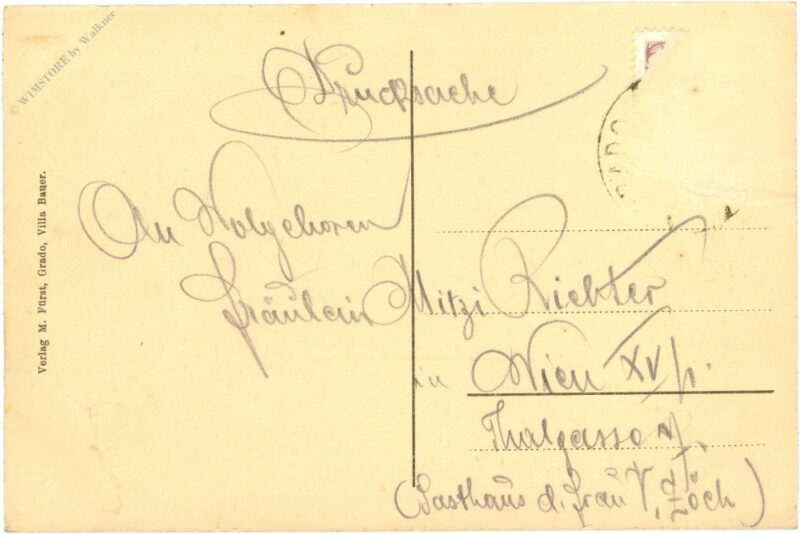 © WIMSTORE by Walkner
Drucksache
GRADO
An Wolgeboren
Fräulein Mitzi Richter
in Wien XV/1.
Thalgasse
(Gasthaus d. Frau V. Zöch)
Verlag M. Fürst, Grado, Villa Bauer.